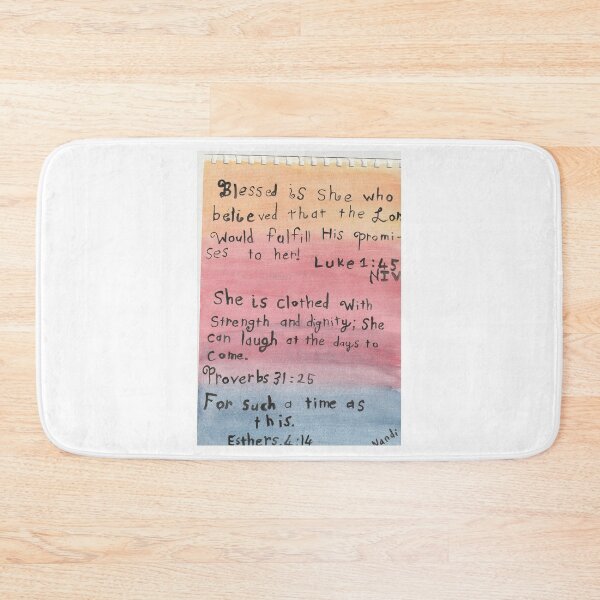 Blessed is She who
believed that the Lor
Would fulfill His promi-
ses to her!
Luke 1:45
NIV
She is clothed with
Strength and dignity; She
can laugh at the days to
Come.
Proverbs 31:25
For such a time as
this.
Esthers. 4:14
Nandi